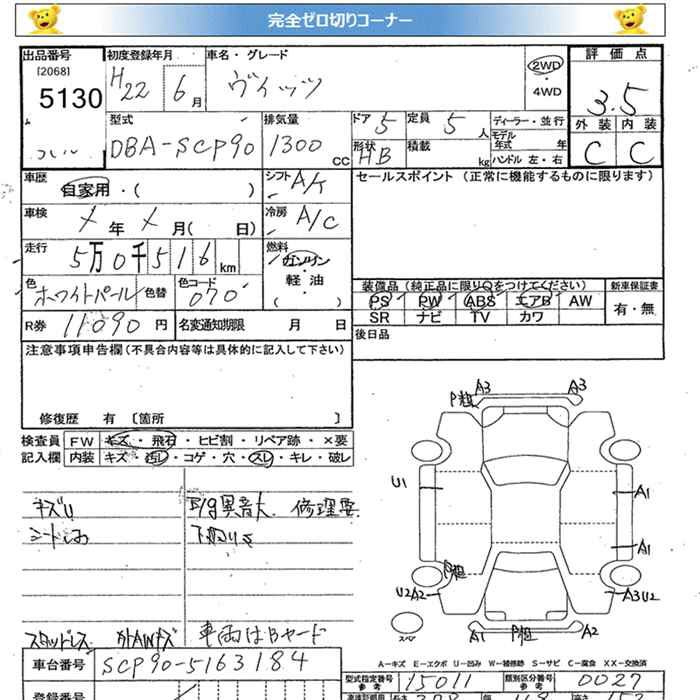 完全ゼロ切りコーナー
出品番号 初度登録年月 車名・グレード 評価点
[2068] H22 6月 ヴィッツ 2WD ・4WD 3.5
5130
型式 排気量 ドア 定員 ディーラー・並行 外装 内装
DBA-SCP90 1300cc 5 5人 モデル年式 年 C C
形状 HB 積載 kg ハンドル 左・右
車歴 自家用・( ) シフト A/T セールスポイント(正常に機能するものに限ります)
車検 年 月( 日) 冷房 A/C
走行 5万0千516km 燃料 ガソリン 軽油 ( )
色 ホワイトパール 色替 色コード 070 装備品(純正品に限り〇をつけてください) 新車保証書
PS PW ABS エアB AW 有・無
SR ナビ TV カワ
R券 11090円 名変通知期限 月 日 後日品
注意事項申告欄(不具合内容等は具体的に記入して下さい)
修復歴 有 [箇所 ]
検査員 FW キズ・飛石・ヒビ割・リペア跡・×要
記入欄 内装 キズ・汚し・コゲ・穴・スレ・キレ・破レ
A3 A3
U1 A1
キズU E/g異音大 修理要
A1
下廻りサ
U2A2 A3U2
スペア
A1 A2
スタッドレス 外AWキズ 車両はBヤード
A-キズ E-エクボ U-凹み W-補修跡 S-サビ C-腐食 XX-交換済
車台番号 SCP90-5163184 型式指定番号 参考 15011 類別区分番号 参考 0027
登録番号